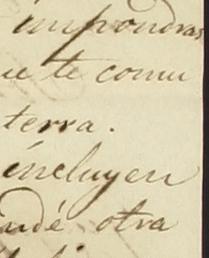 impondras
ue te comu
terra.
incluyen
udé otra